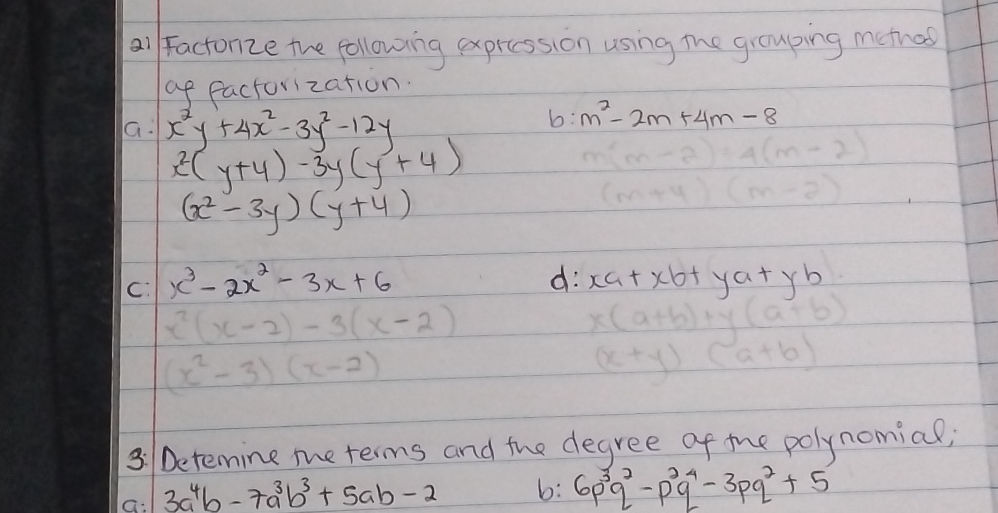 2) Factorize the following expression using the grouping method
of factorization.
a: x²y + 4x² - 3y² - 12y
x²(y+4) - 3y(y+4)
(x² - 3y)(y+4)
b: m² - 2m + 4m - 8
m(m-2) + 4(m-2)
(m+4) (m-2)
c: x³ - 2x² - 3x + 6
x²(x-2) - 3(x-2)
(x² - 3) (x-2)
d: xa + xb + ya + yb
x(a+b) + y(a+b)
(x+y) (a+b)
3: Detemine the terms and the degree of the polynomial;
a: 3a⁴b - 7a³b³ + 5ab - 2
b: 6p³q² - p²q⁴ - 3pq² + 5